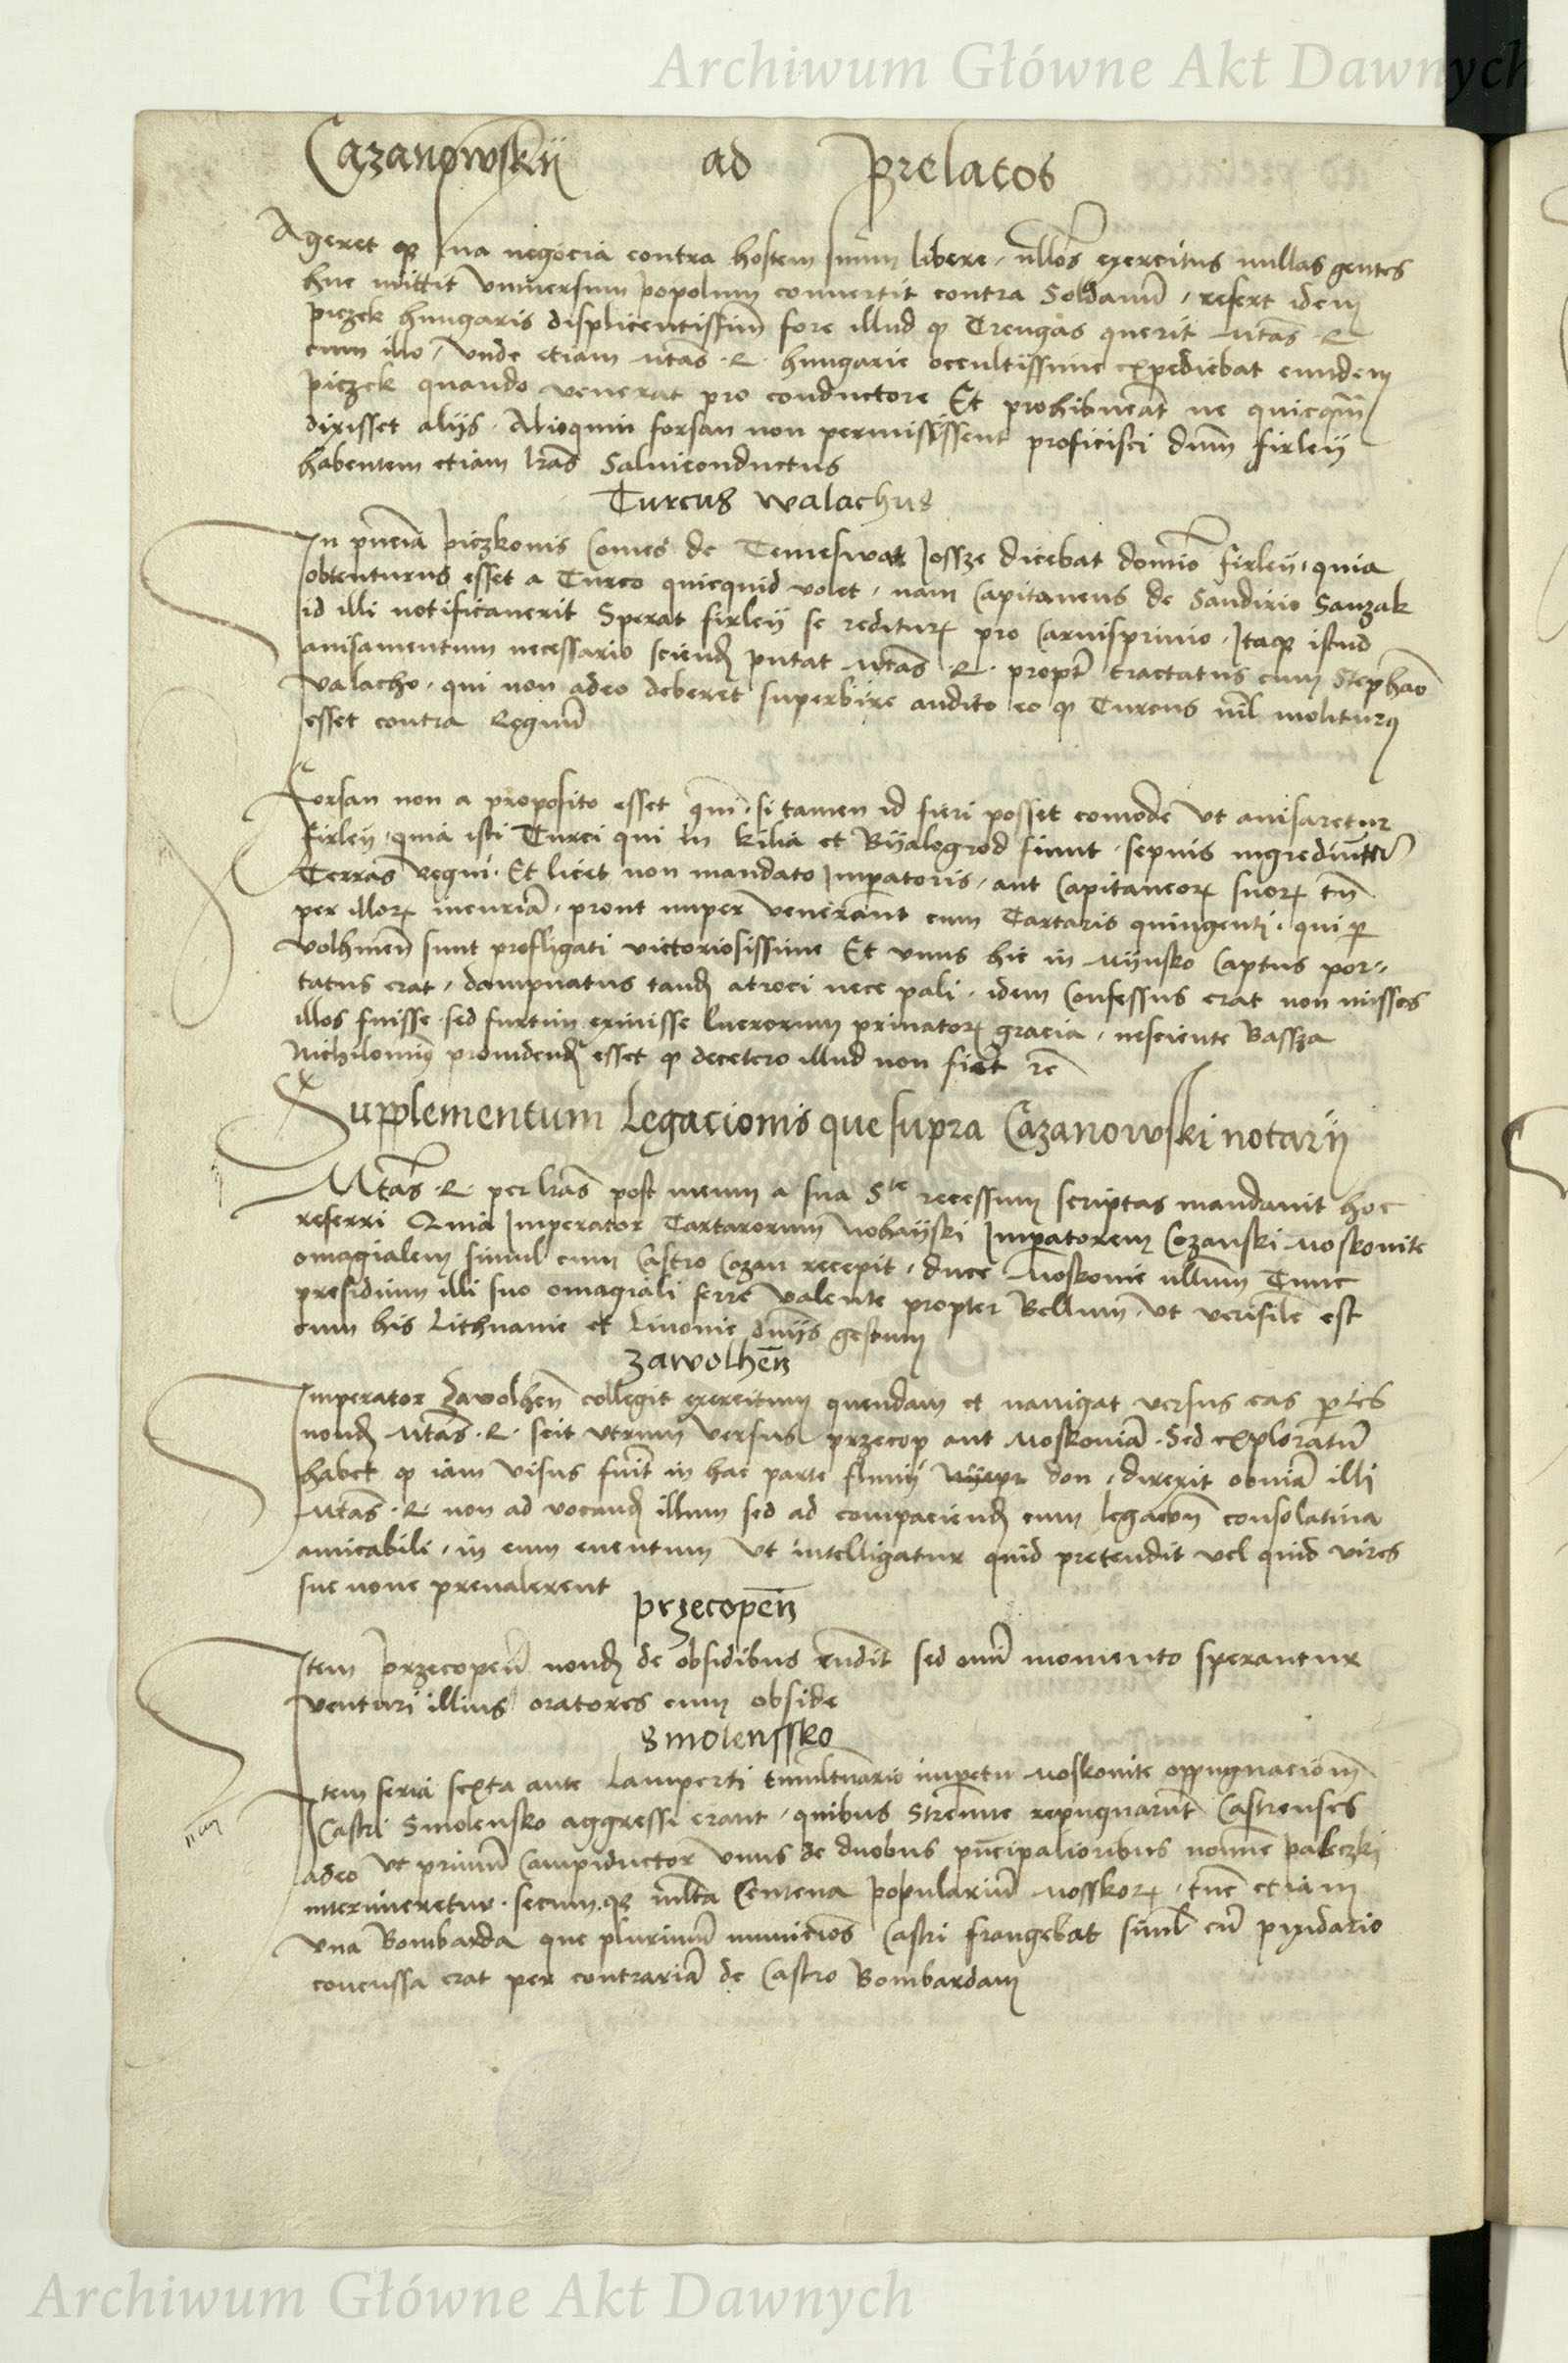 Archiwum Główne Akt Dawnych
Cazanowskij ad Prelatos
Ageret q sua negocia contra hostem suum libere, ullos exercitus nullas gentes
huc mittit Universum popolum convertit contra Soldanū, refert idem
piczek hungaris displicentissim̄ fore illud q Treugas querit Mtas R
cum illo, Unde etiam Mtas R hungarie occultissime expediebat eundem
piczek quando venerat pro conductore Et prohibueāt ne quicqm̄
dixisset alijs. Alioquin forsan non permisissent proficisci dnm̄ firleij
habentem etiam lrās Salviconductus
Turcus walachus
In pn̄ciā piczkonis Comes de Temeswar Jossze dicebat domīo firleij, quia
obtenturus esset a Turco quicquid volet, nam Capitaneus de Sandirio Sanzak
id illi notificaverit Sperat firleij se rediturꝝ pro Carnisprivio. Itaq istud
avisamentum necessario sciend putat Mtas R propt̄ tractatus cum Stephāo
Valacho, qui non adeo deberet superbire audito eo q Turcus nil̄ moliturꝰ
esset contra Regnū
Forsan non a proposito esset qm̄, si tamen id fieri posset comode Ut avisaretur
firleij, quia isti Turci qui in kilia et Bijalogrod sunt, sepius ingrediuntur
Terras regni. Et licet non mandato Imperatoris, aut Capitaneorꝝ suorꝝ tn̄
per illorꝝ incuriā, prout nuper venerant cum Tartaris quingenti, qui p
volhinen̄ sunt profligati victoriosissime Et unus hic in Mijnsko Captus por-
tatus erat, dampnatus tand atroci nece pali, idem Confessus erat non missos
illos fuisse sed furtim exivisse lucrorum privatorꝝ gracia, nesciente Bassza
Nichilomiꝰ providend esset q decetero illud non fiet rc̄
Supplementum Legacionis que supra Cazanowski notarij
Mtas R per lrās post meum a sua Ste recessum scriptas mandavit hoc
referri Quia Imperator Tartarorum nohaijski Imperatorem Cozanski Moskovite
omagialem simul cum Castro Cozan recepit, duce Moskovie ullum Tunc
presidium illi suo omagiali ferre valente propter Bellum, Ut verisile est
cum his Lithuanie et Livonie dn̄ijs gestum
zawolhen̄
Imperator Zawolhen̄ collegit exercitum quendam et navigat versus eas ptes
nond Mtas R scit utrum versus przecop aut Moskoviā. Sed exploratū
habet q iam visus fuit in hac parte fluvij don, direxit obviā illi
Mtas R non ad vocand illum sed ad compaciend cum legacōn̄ consolativa
amicabili, in eum eventum Ut intelligatur quid pretendit vel quid vires
sue nove prevalerent
przecopen̄
Item przecopen̄ nond de obsidibus rn̄dit sed omī momento sperantur
venturi illius oratores cum obside
Smolenssko
Item feria sexta ante Lamperti tumultuario impetu Moskovite oppugnaciom̄
Castri Smolensko aggressi erant, quibus Strennue repugnarūt Castrenses
adeo Ut primū Campiductor Unus de duobus pn̄cipalioribus noīne paleczki
interimeretur, secumq mlta Centena popularium Mosskorꝝ, tūc etiam
Una Bombarda que plurimū municiōs Castri frangebat siml cū pixidario
concussa erat per contrariā de Castro Bombardam
Archiwum Główne Akt Dawnych